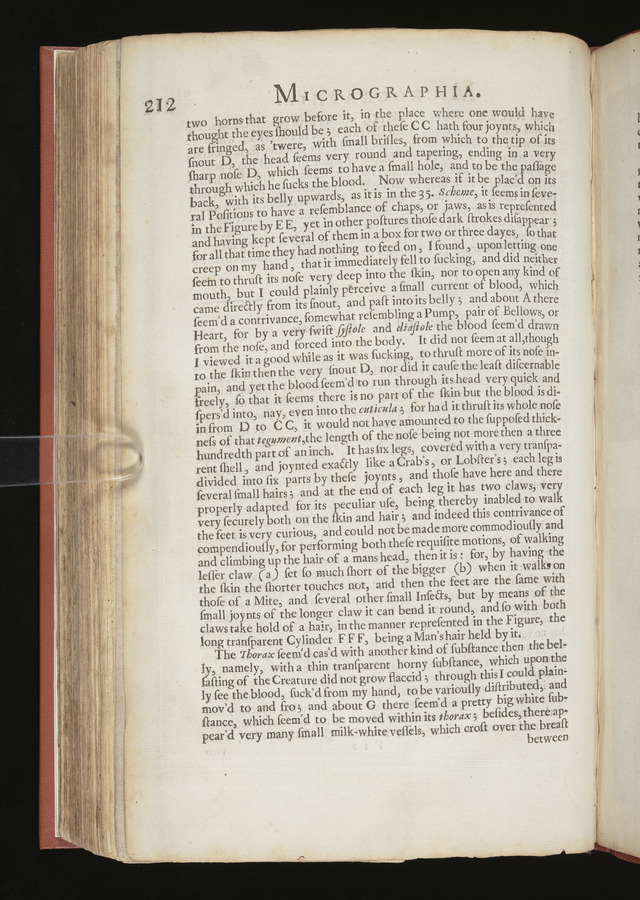 212
MICROGRAPHIA.
two horns that grow before it, in the place where one would have
thought the eyes ſhould be; each of theſe CC hath four joynts, which
are fringed, as 'twere, with ſmall briſles, from which to the tip of its
ſnout D, the head ſeems very round and tapering, ending in a very
ſharp noſe D, which ſeems to have a ſmall hole, and to be the paſſage
through which he ſucks the blood. Now whereas if it be plac'd on its
back, with its belly upwards, as it is in the 35. Scheme, it ſeems in ſeve-
ral Poſitions to have a reſemblance of chaps, or jaws, as is repreſented
in the Figure by EE, yet in other poſtures thoſe dark ſtrokes diſappear;
and having kept ſeveral of them in a box for two or three dayes, ſo that
for all that time they had nothing to feed on, I found, upon letting one
creep on my hand, that it immediately fell to ſucking, and did neither
ſeem to thruſt its noſe very deep into the ſkin, nor to open any kind of
mouth, but I could plainly perceive a ſmall current of blood, which
came directly from its ſnout, and paſt into its belly; and about A there
ſeem'd a contrivance, ſomewhat reſembling a Pump, pair of Bellows, or
Heart, for by a very ſwift ſyſtole and diaſtole the blood ſeem'd drawn
from the noſe, and forced into the body. It did not ſeem at all, though
I viewed it a good while as it was ſucking, to thruſt more of its noſe in-
to the ſkin then the very ſnout D, nor did it cauſe the leaſt diſcernable
pain, and yet the blood ſeem'd to run through its head very quick and
freely, ſo that it ſeems there is no part of the ſkin but the blood is di-
ſpers'd into, nay, even into the cuticula; for had it thruſt its whole noſe
in from D to CC, it would not have amounted to the ſuppoſed thick-
neſs of that tegument, the length of the noſe being not more then a three
hundredth part of an inch. It has ſix legs, covered with a very tranſpa-
rent ſhell, and joynted exactly like a Crab's, or Lobſter's; each leg is
divided into ſix parts by theſe joynts, and thoſe have here and there
ſeveral ſmall hairs; and at the end of each leg it has two claws, very
properly adapted for its peculiar uſe, being thereby inabled to walk
very ſecurely both on the ſkin and hair; and indeed this contrivance of
the feet is very curious, and could not be made more commodiouſly and
compendiouſly, for performing both theſe requiſite motions, of walking
and climbing up the hair of a mans head, then it is: for, by having the
leſſer claw (a) ſet ſo much ſhort of the bigger (b) when it walks on
the ſkin the ſhorter touches not, and then the feet are the ſame with
thoſe of a Mite, and ſeveral other ſmall Inſects, but by means of the
ſmall joynts of the longer claw it can bend it round, and ſo with both
claws take hold of a hair, in the manner repreſented in the Figure, the
long tranſparent Cylinder FFF, being a Man's hair held by it.
The Thorax ſeem'd cas'd with another kind of ſubſtance then the bel-
ly, namely, with a thin tranſparent horny ſubſtance, which upon the
faſting of the Creature did not grow flaccid; through this I could plain-
ly ſee the blood, ſuck'd from my hand, to be variouſly diſtributed, and
mov'd to and fro; and about G there ſeem'd a pretty big white ſub-
ſtance, which ſeem'd to be moved within its thorax; beſides, there ap-
pear'd very many ſmall milk-white veſſels, which croſt over the breaſt
between